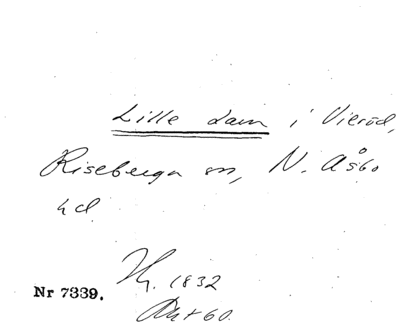 Lille dam i Vieröd,
Riseberga sn, N. Åsbo
hd
Hg. 1832
Nr 7339.
Akt 60.